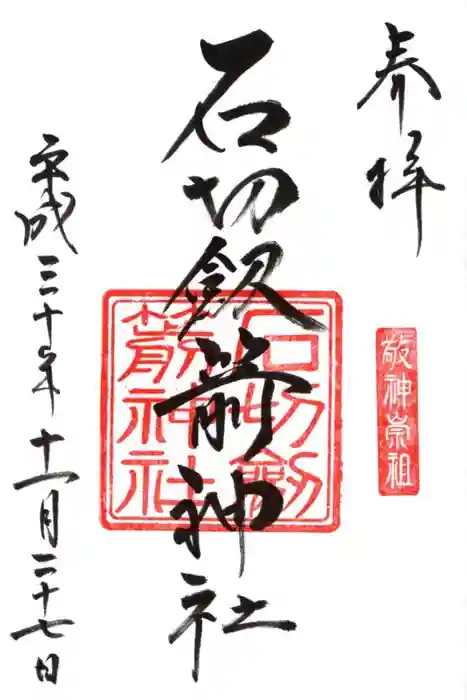 奉拝
敬神崇祖
石切釼箭神社
石切劔箭神社
平成三十年十一月二十七日